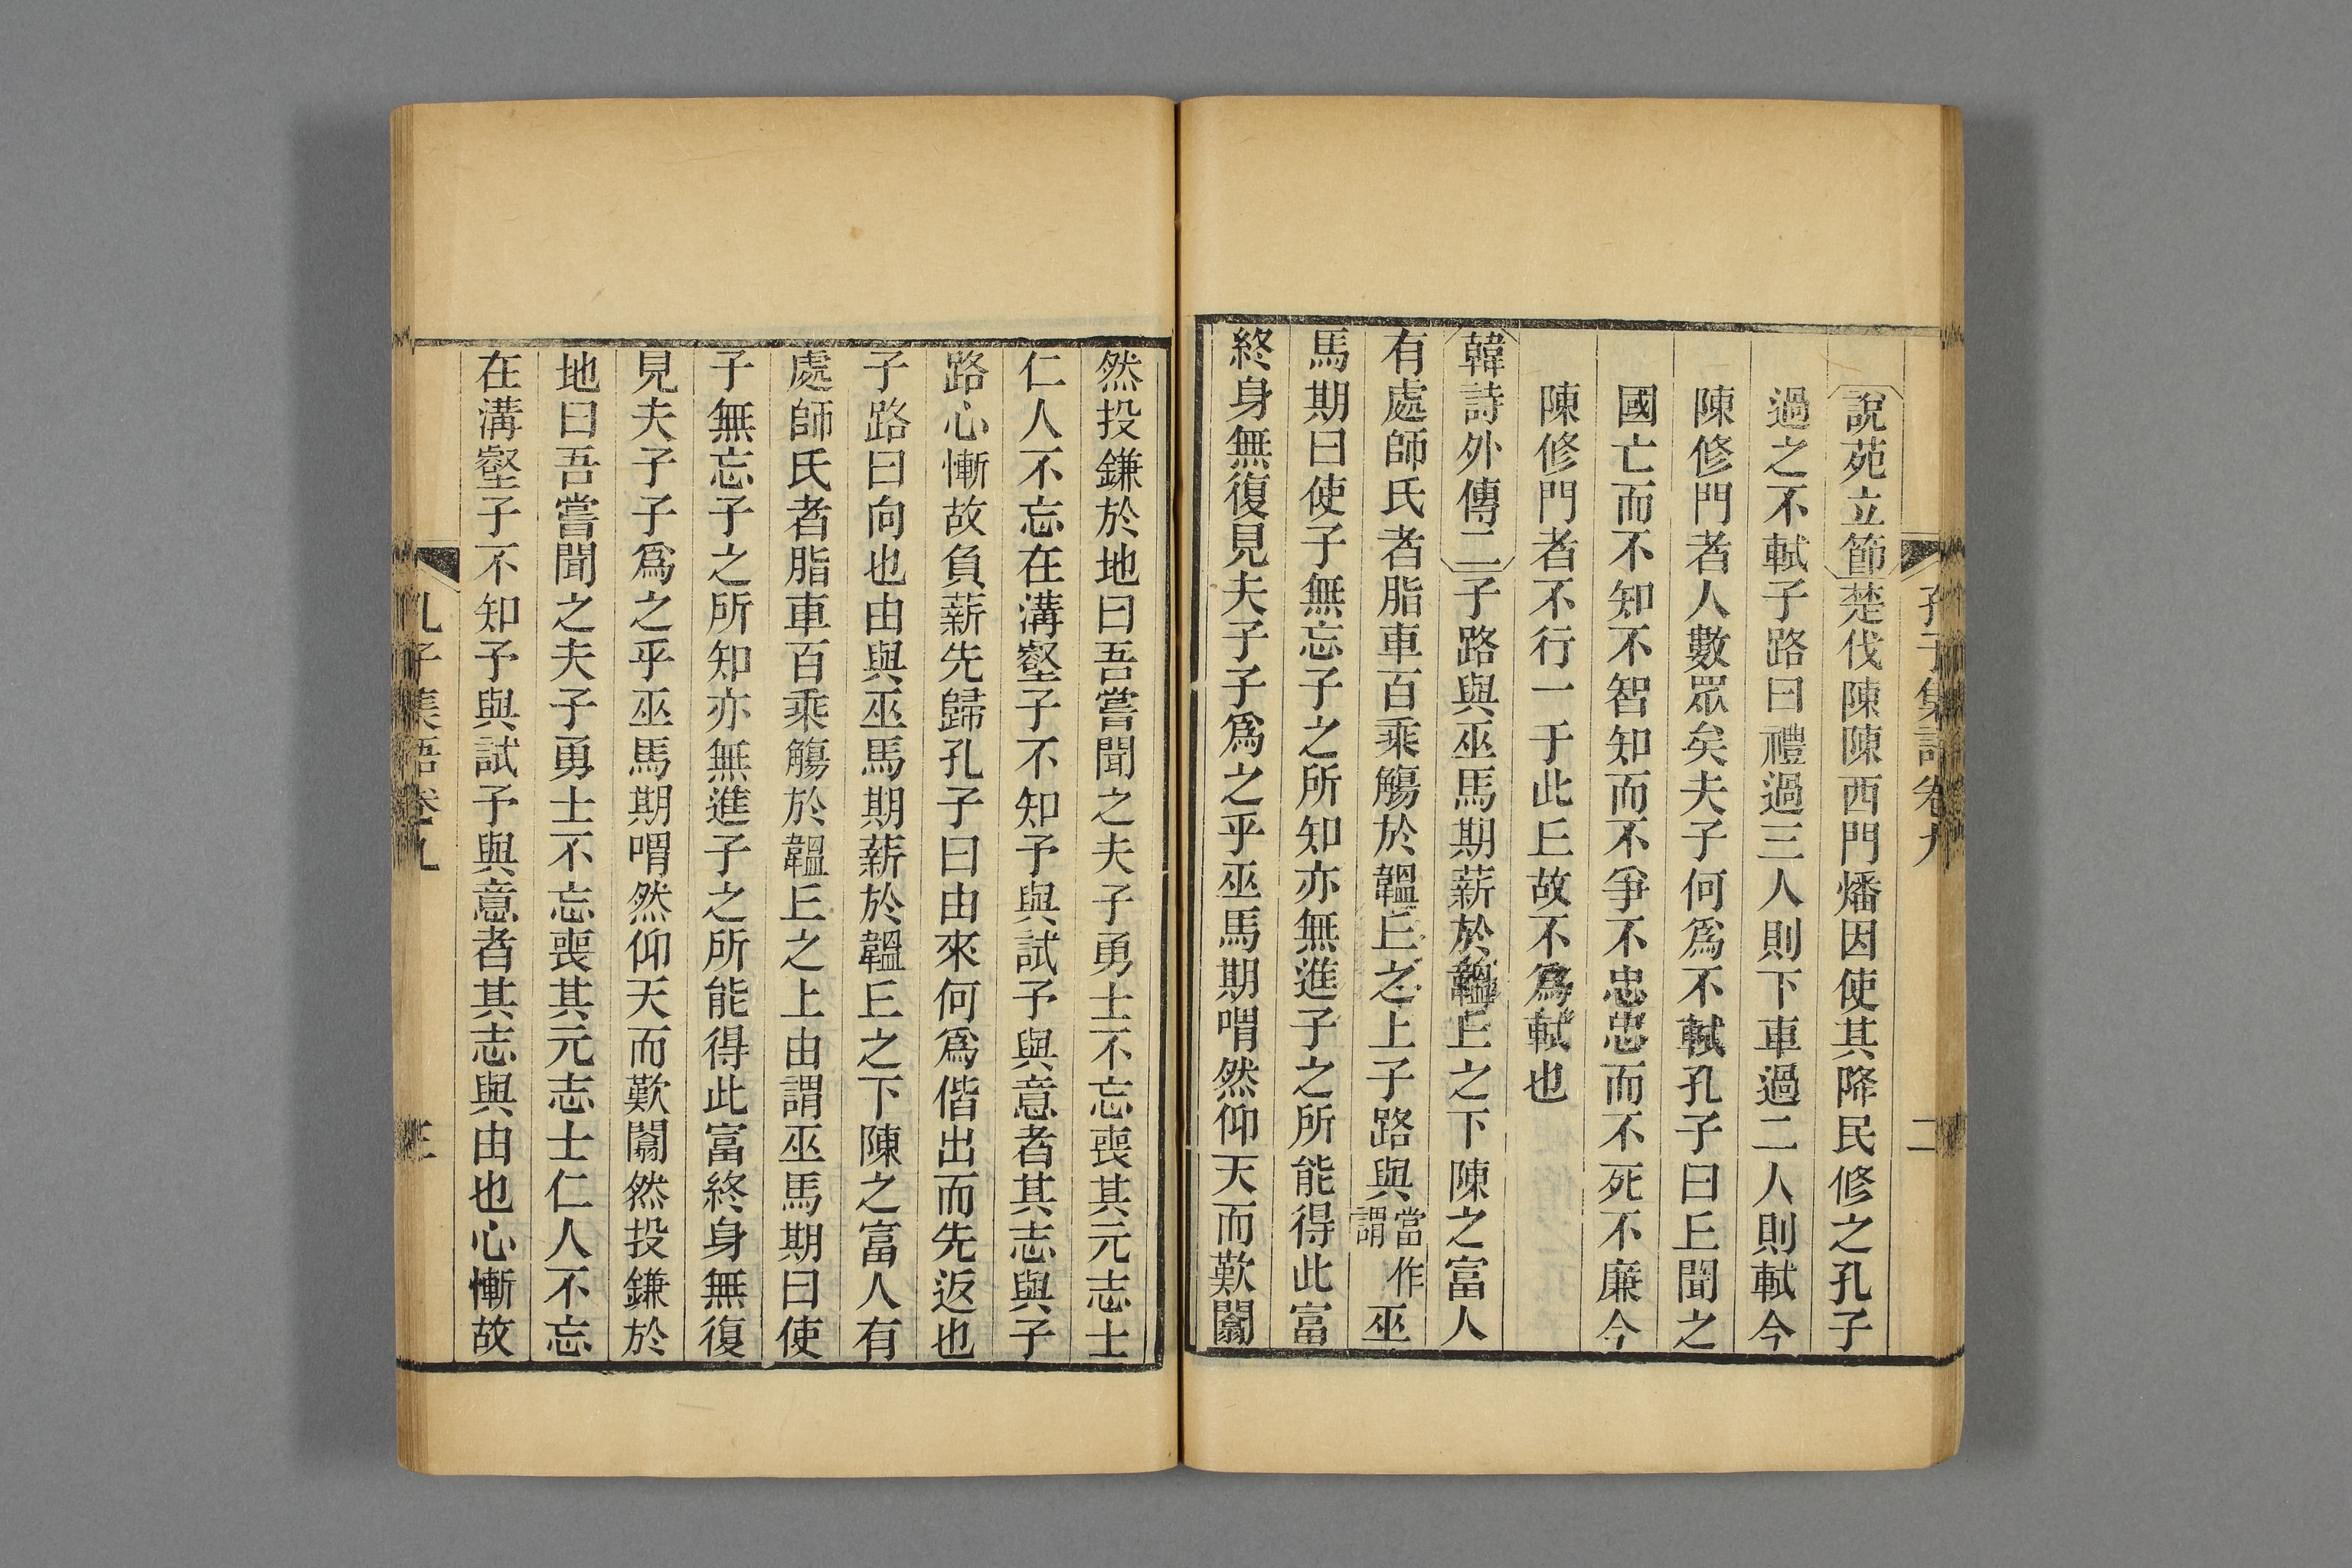 孔子集語卷九 二
說苑立節楚伐陳陳西門燔因使其降民修之孔子
過之不軾子路曰禮過三人則下車過二人則軾今
陳修門者人數眾矣夫子何爲不軾孔子曰𠀉聞之
國亡而不知不智知而不爭不忠忠而不死不廉今
陳修門者不行一于此𠀉故不爲軾也
韓詩外傳二子路與巫馬期薪於韞𠀉之下陳之富人
有處師氏者脂車百乘觴於韞𠀉之上子路與當作謂巫
馬期曰使子無忘子之所知亦無進子之所能得此富
終身無復見夫子子爲之乎巫馬期喟然仰天而歎闟
然投鎌於地曰吾嘗聞之夫子勇士不忘喪其元志士
仁人不忘在溝壑子不知予與試予與意者其志與子
路心慚故負薪先歸孔子曰由來何爲偕出而先返也
子路曰向也由與巫馬期薪於韞𠀉之下陳之富人有
處師氏者脂車百乘觴於韞𠀉之上由謂巫馬期曰使
子無忘子之所知亦無進子之所能得此富終身無復
見夫子子爲之乎巫馬期喟然仰天而歎闟然投鎌於
地曰吾嘗聞之夫子勇士不忘喪其元志士仁人不忘
在溝壑子不知予與試予與意者其志與由也心慚故
孔子集語卷九 三